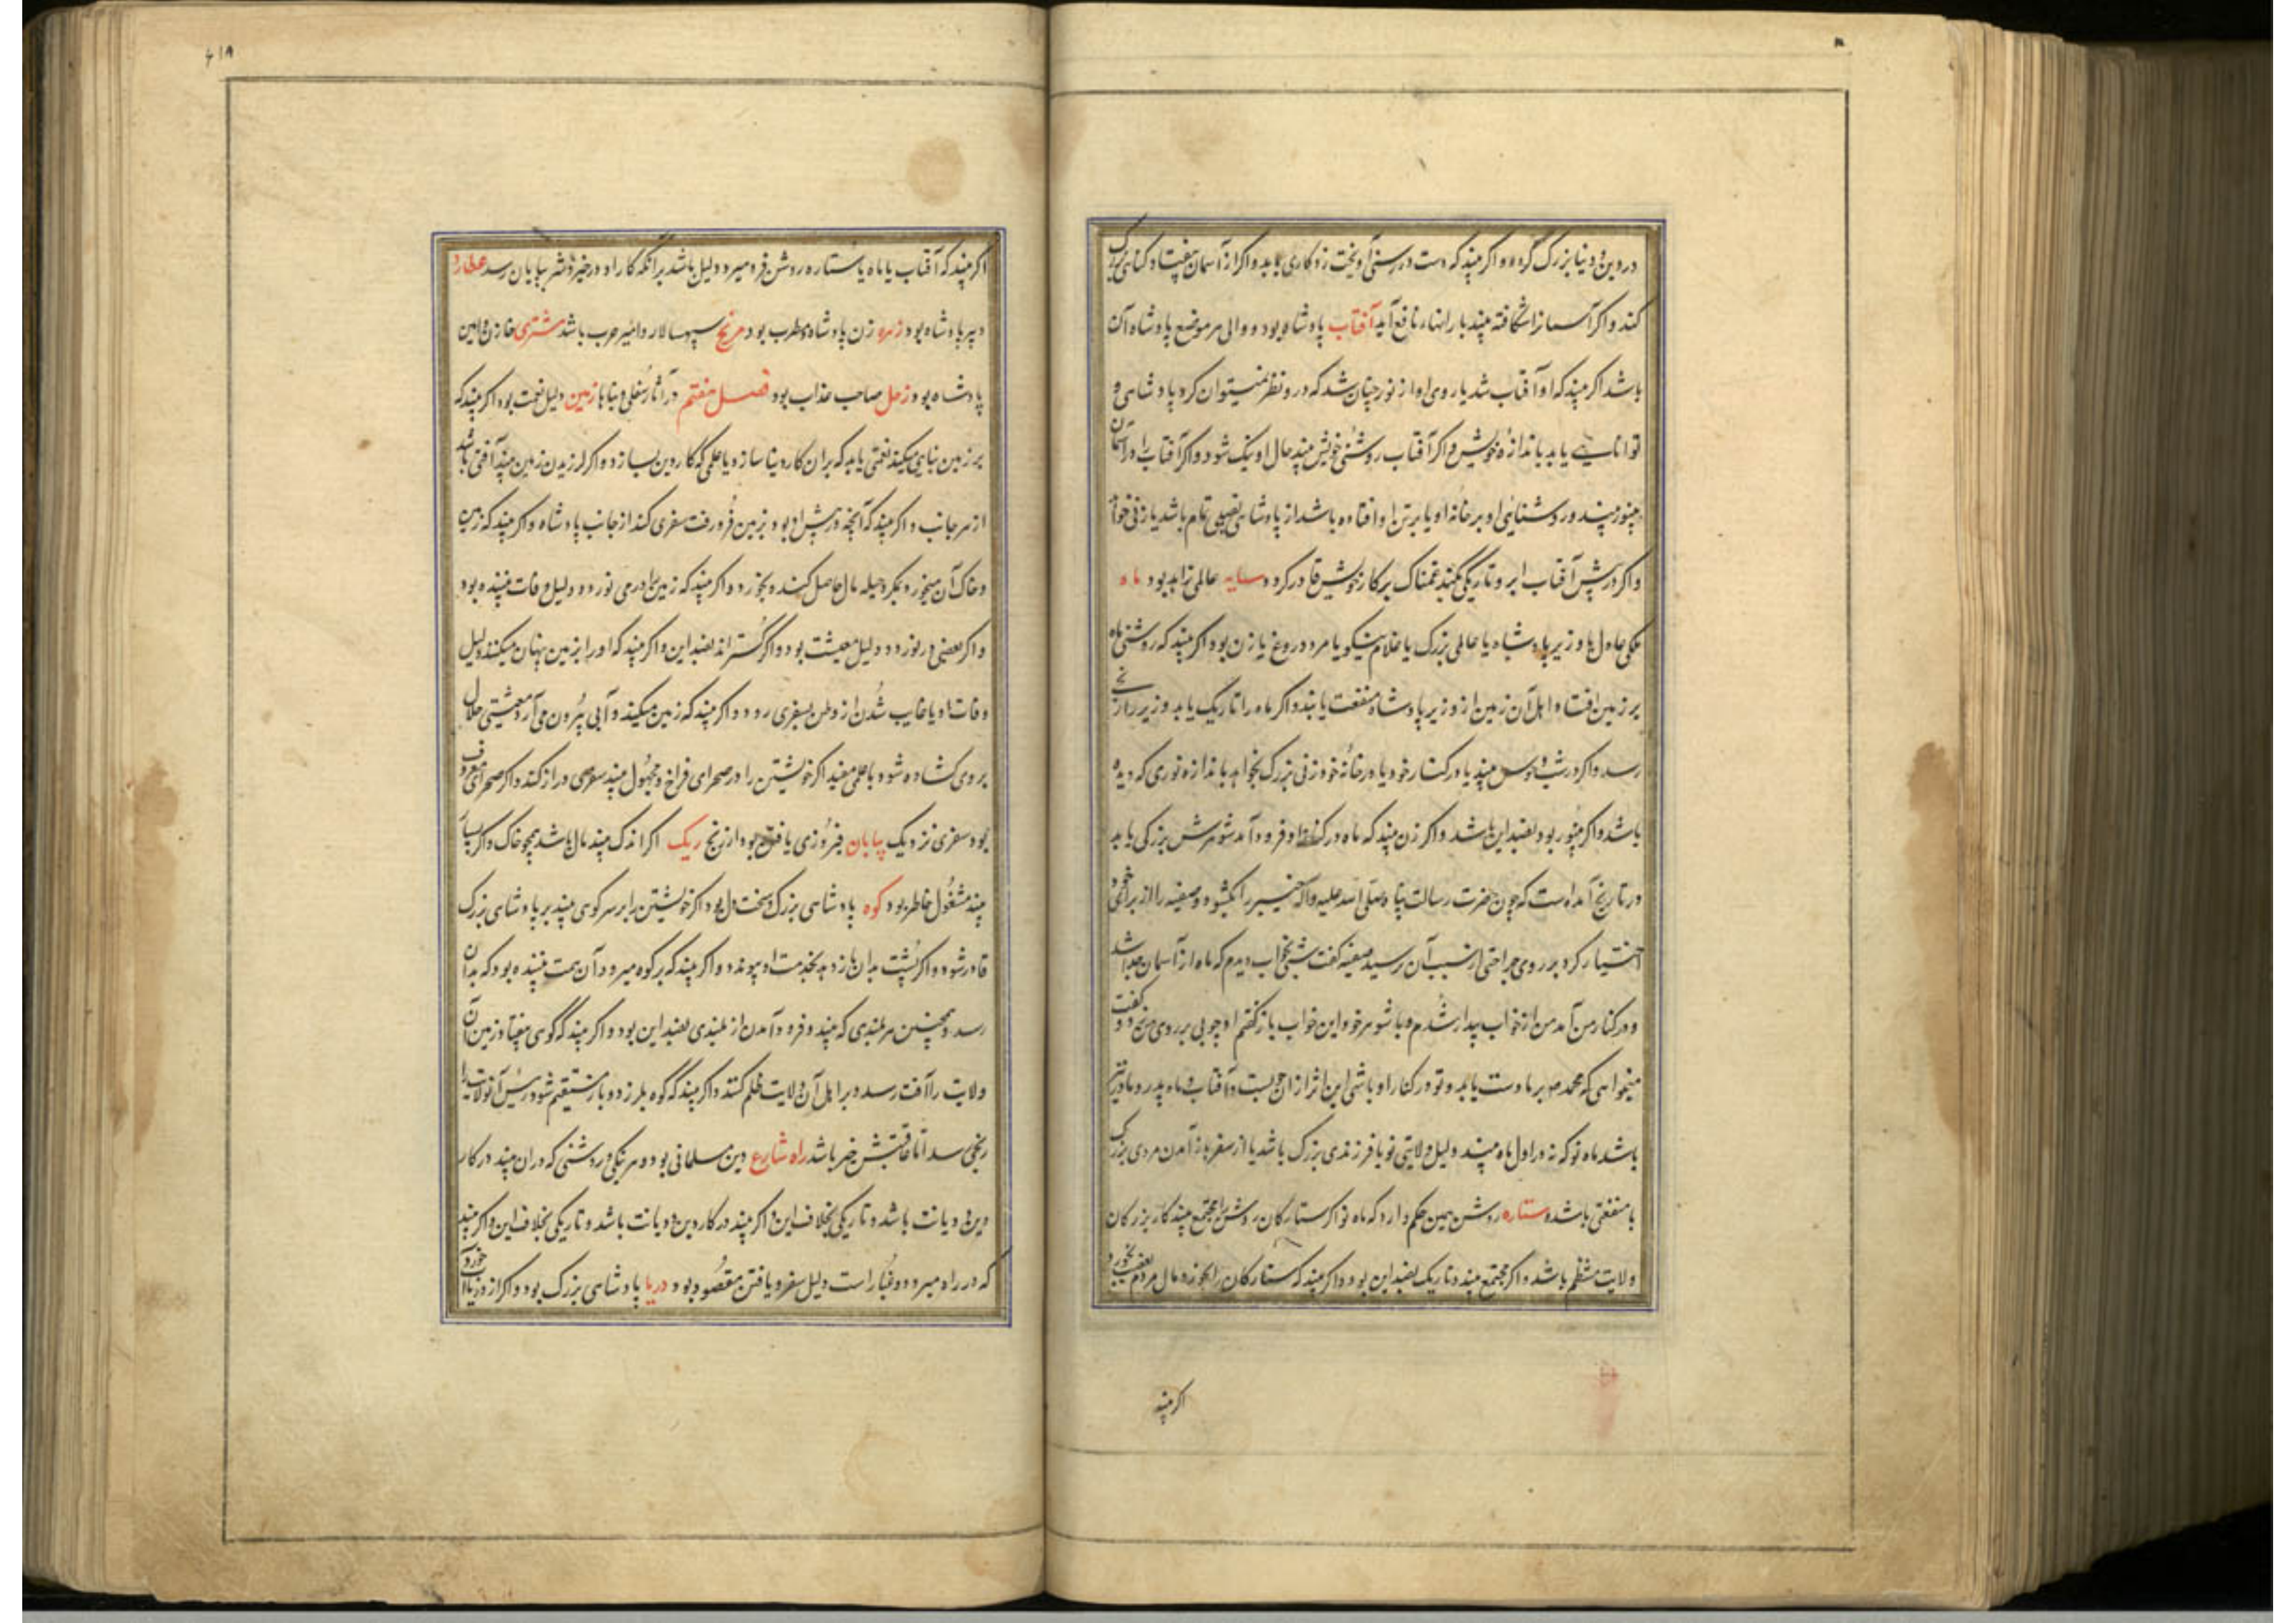 در دین و دنیا بزرگ گردد و اگر بیند که دست در رسنی آویخت زو کاری بیاید و اگر از آسمان بیفتاد گناهی بزرگ
کند و اگر آسمان را شکافته بیند بارانهاء نافع آید آفتاب پادشاه بود و والی هر موضع پادشاه آن
باشد اگر بیند که او آفتاب شد یا روی او از نور چنان شد که درو نظر نمیتوان کرد پادشاهی و
توانایی یابد باندازه خویش و اگر آفتاب روشنی خویش بیند حال او نیک شود و اگر آفتاب را در آسمان
منور بیند و روشنایی او بر خانه او یا بر تن او افتاده باشد از پادشاهی نصیبی تمام باشد یا زنی خواهد
و اگر در پیش آفتاب ابر و تاریکی بیند غمناک بر کار خویش قادر گردد سایه عالمی زاهد بود ماه
ملکی عادل یا وزیر پادشاه یا عالمی بزرگ یا غلام نیکو یا مرد دروغ یا زن بود اگر بیند که روشنی ماه
بر زمین افتاد اهل آن زمین از وزیر پادشاه منفعت یابند و اگر ماه را تاریک یابد وزیر را رنجی
رسد و اگر در شب بیند یا در کنار خود یا در خانه خود زنی بزرگ بخواهد باندازه نوری که دیده
باشد و اگر بی نور بود بضد این باشد و اگر زن بیند که ماه در کنار او فرود آمد شوهرش بزرگی یابد
در تاریخ آمده است که چون حضرت رسالت پناه صلی الله علیه و آله خیبر را بگشود و صفیه را از برای خود
اختیار کرد بر روی جراحتی از سبب آن پرسید صفیه گفت شبی بخواب دیدم که ماه از آسمان جدا شد
و در کنار من آمد من از خواب بیدار شدم و با شوهر خود این خواب باز گفتم او چوبی بر روی من زد و گفت
میخواهی که محمد ص بر ما دست یابد و تو در کنار او باشی این اثر از آن چوبست و آفتاب و ماه پدر و مادر نیز
باشد ماه نو که نه در اول ماه بیند دلیل ولایتی نو یا فرزندی بزرگ باشد یا از سفر باز آمدن مردی بزرگ
با منفعتی باشد و ستاره روشن همین حکم دارد که ماه نو اگر ستارگان روشن را مجتمع بیند کار بزرگان
ولایت منتظم باشد و اگر مجتمع بیند و تاریک بضد این بود و اگر بیند که ستارگان را بخورد مال مردم بخورد
اگر بیند
۴۱۸
اگر بیند که آفتاب یا ماه یا ستاره روشن فرو میرود دلیل باشد بر آنکه کار او در خیر و شر بپایان رسد عطارد
دبیر پادشاه بود زهره زن پادشاه و مطرب بود مریخ سپهسالار و امیر حرب باشد مشتری خازن و امین
پادشاه بود زحل صاحب عذاب بود فصل هفتم در آثار سفلی و بناها زمین دلیل نعمت بود اگر بیند که
بر زمین بنایی میکند نعمتی یابد که بران کار دنیا سازد یا علمی که کار دین سازد و اگر لرزیدن زمین بیند آفتی باشد
از هر جانب و اگر بیند که آنچه در پیش او بود بزمین فرو رفت سفری کند از جانب پادشاه و اگر بیند که زمین
و خاک آن میخورد بمکر و حیله مال حاصل کند و بخورد و اگر بیند که زمین را در می نوردد دلیل وفات بیننده بود
و اگر بعضی در نوردد دلیل معیشت بود و اگر گستراند بضد این و اگر بیند که او را بزمین پنهان میکنند دلیل
وفات او یا غایب شدن از وطن بسفری رود و اگر بیند که زمین میکند و آبی بیرون می آرد معیشتی حلال
بر وی گشاده شود یا علمی مفید اگر خویشتن را در صحرای فراخ و مجهول بیند سفری دراز کند و اگر صحرای معروف
بود سفری نزدیک بیابان فیروزی یافتن بود از رنج ریک اگر اندک بیند مال باشد همچو خاک و اگر بسیار
بیند مشغول خاطر بود کوه پادشاهی بزرگ و سخت دل بود اگر خویشتن را بر سر کوهی بیند بر پادشاهی بزرگ
قادر شود و اگر پشت بدان باز دهد بخدمت او پیوندد و اگر بیند که بر کوه میرود آن همت بیننده بود که بدان
رسد و همچنین هر بلندی که بیند و فرود آمدن از بلندی بضد این بود و اگر بیند که کوهی بیفتاد زمین آن
ولایت را آفت رسد و بر اهل آن ولایت ظلم کنند و اگر بیند که کوه بلرزد و باز مستقیم شود رئیس آن ولایت را
رنجی رسد اما عاقبتش خیر باشد راه شارع دین مسلمانی بود و هر نیکی و روشنی که دران بیند در کار
دین و دیانت باشد و تاریکی بخلاف این و اگر بیند در کار دین و دیانت باشد و تاریکی بخلاف این و اگر بیند
که در راه میرود و غبار است دلیل سفر و یافتن مقصود بود دریا پادشاهی بزرگ بود و اگر از دریا آب خورد